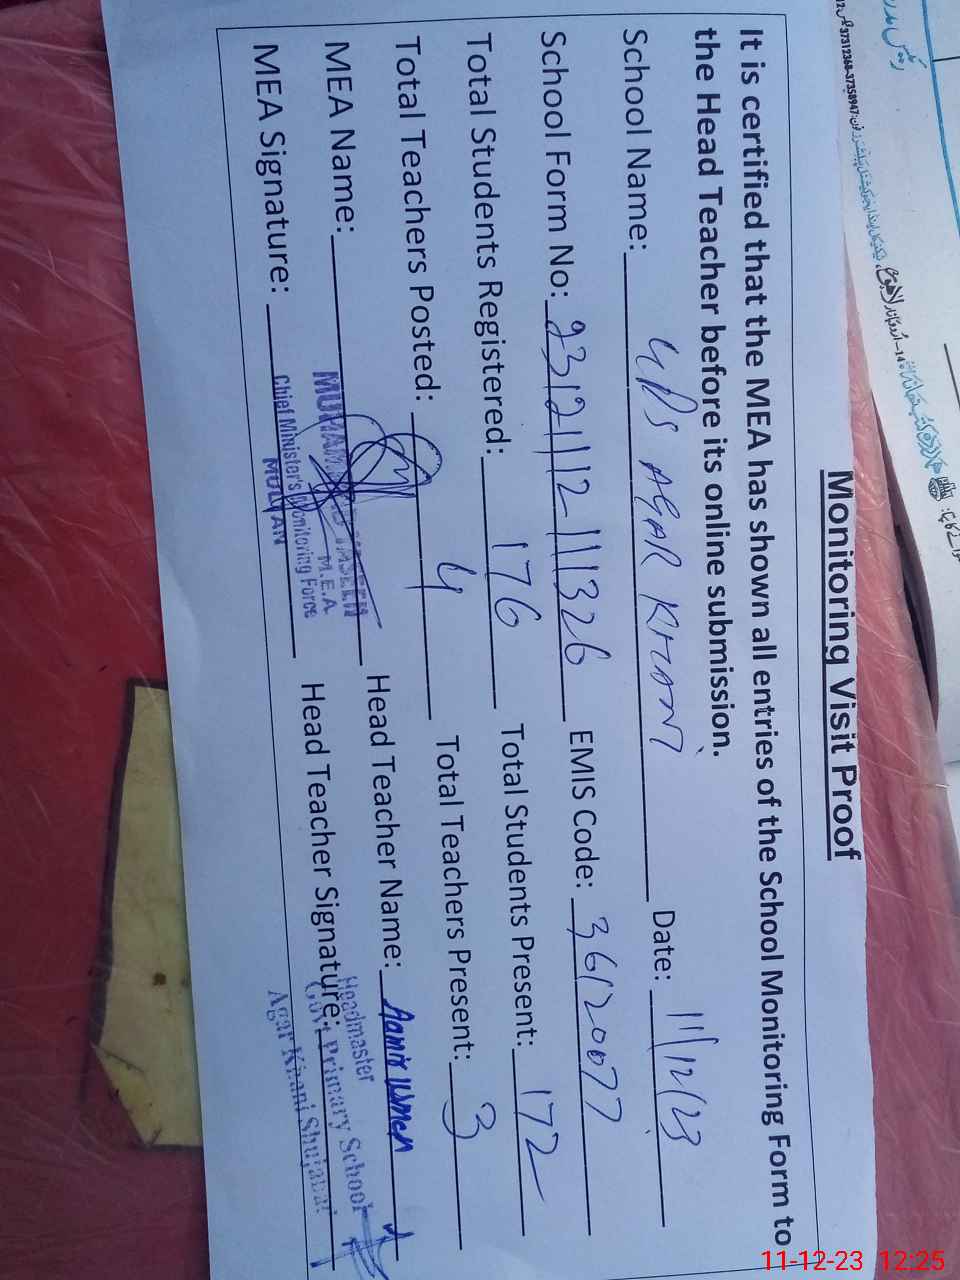 Monitoring Visit Proof
It is certified that the MEA has shown all entries of the School Monitoring Form to
the Head Teacher before its online submission.
School Name: GPS AGAR KHAN Date: 11/12/23
School Form No: EMIS Code: 36120077
Total Students Registered: 176 Total Students Present: 172
Total Teachers Posted: 4 Total Teachers Present: 3
MEA Name: Head Teacher Name: Aamir
MEA Signature: Head Teacher Signature:
MUHAMMAD YASEEN
M.E.A
Chief Minister's Monitoring Force
MULTAN
Headmaster
Govt Primary School
Agar Khani Shujabad
37312368-37358947
11-12-23 12:25